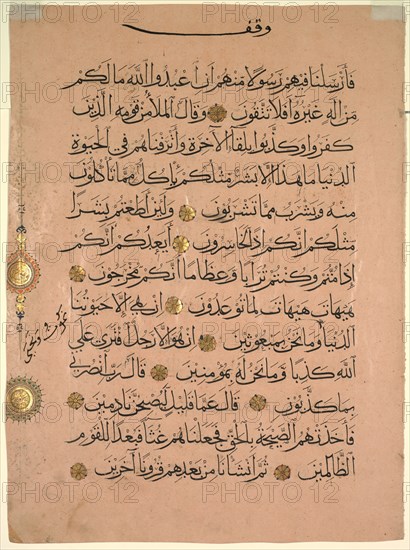 وقف
فَأَرْسَلْنَا فِيهِمْ رَسُولًا مِنْهُمْ أَنِ اعْبُدُوا اللَّهَ مَا لَكُمْ
مِنْ إِلَهٍ غَيْرُهُ أَفَلَا تَتَّقُونَ وَقَالَ الْمَلَأُ مِنْ قَوْمِهِ الَّذِينَ
كَفَرُوا وَكَذَّبُوا بِلِقَاءِ الْآخِرَةِ وَأَتْرَفْنَاهُمْ فِي الْحَيٰوةِ
الدُّنْيَا مَا هَذَا إِلَّا بَشَرٌ مِثْلُكُمْ يَأْكُلُ مِمَّا تَأْكُلُونَ
مِنْهُ وَيَشْرَبُ مِمَّا تَشْرَبُونَ وَلَئِنْ أَطَعْتُمْ بَشَرًا
مِثْلَكُمْ إِنَّكُمْ إِذًا لَخَاسِرُونَ أَيَعِدُكُمْ أَنَّكُمْ
إِذَا مِتُّمْ وَكُنْتُمْ تُرَابًا وَعِظَامًا أَنَّكُمْ مُخْرَجُونَ
هَيْهَاتَ هَيْهَاتَ لِمَا تُوعَدُونَ إِنْ هِيَ إِلَّا حَيٰوتُنَا
الدُّنْيَا وَمَا نَحْنُ بِمَبْعُوثِينَ إِنْ هُوَ إِلَّا رَجُلٌ افْتَرَى عَلَى
اللَّهِ كَذِبًا وَمَا نَحْنُ لَهُ بِمُؤْمِنِينَ قَالَ رَبِّ انْصُرْنِي
بِمَا كَذَّبُونِ قَالَ عَمَّا قَلِيلٍ لَيُصْبِحُنَّ نَادِمِينَ
فَأَخَذَتْهُمُ الصَّيْحَةُ بِالْحَقِّ فَجَعَلْنَاهُمْ غُثَاءً فَبُعْدًا لِلْقَوْمِ
الظَّالِمِينَ ثُمَّ أَنْشَأْنَا مِنْ بَعْدِهِمْ قُرُونًا آخَرِينَ
نموت ونحيا
PHOTO 12